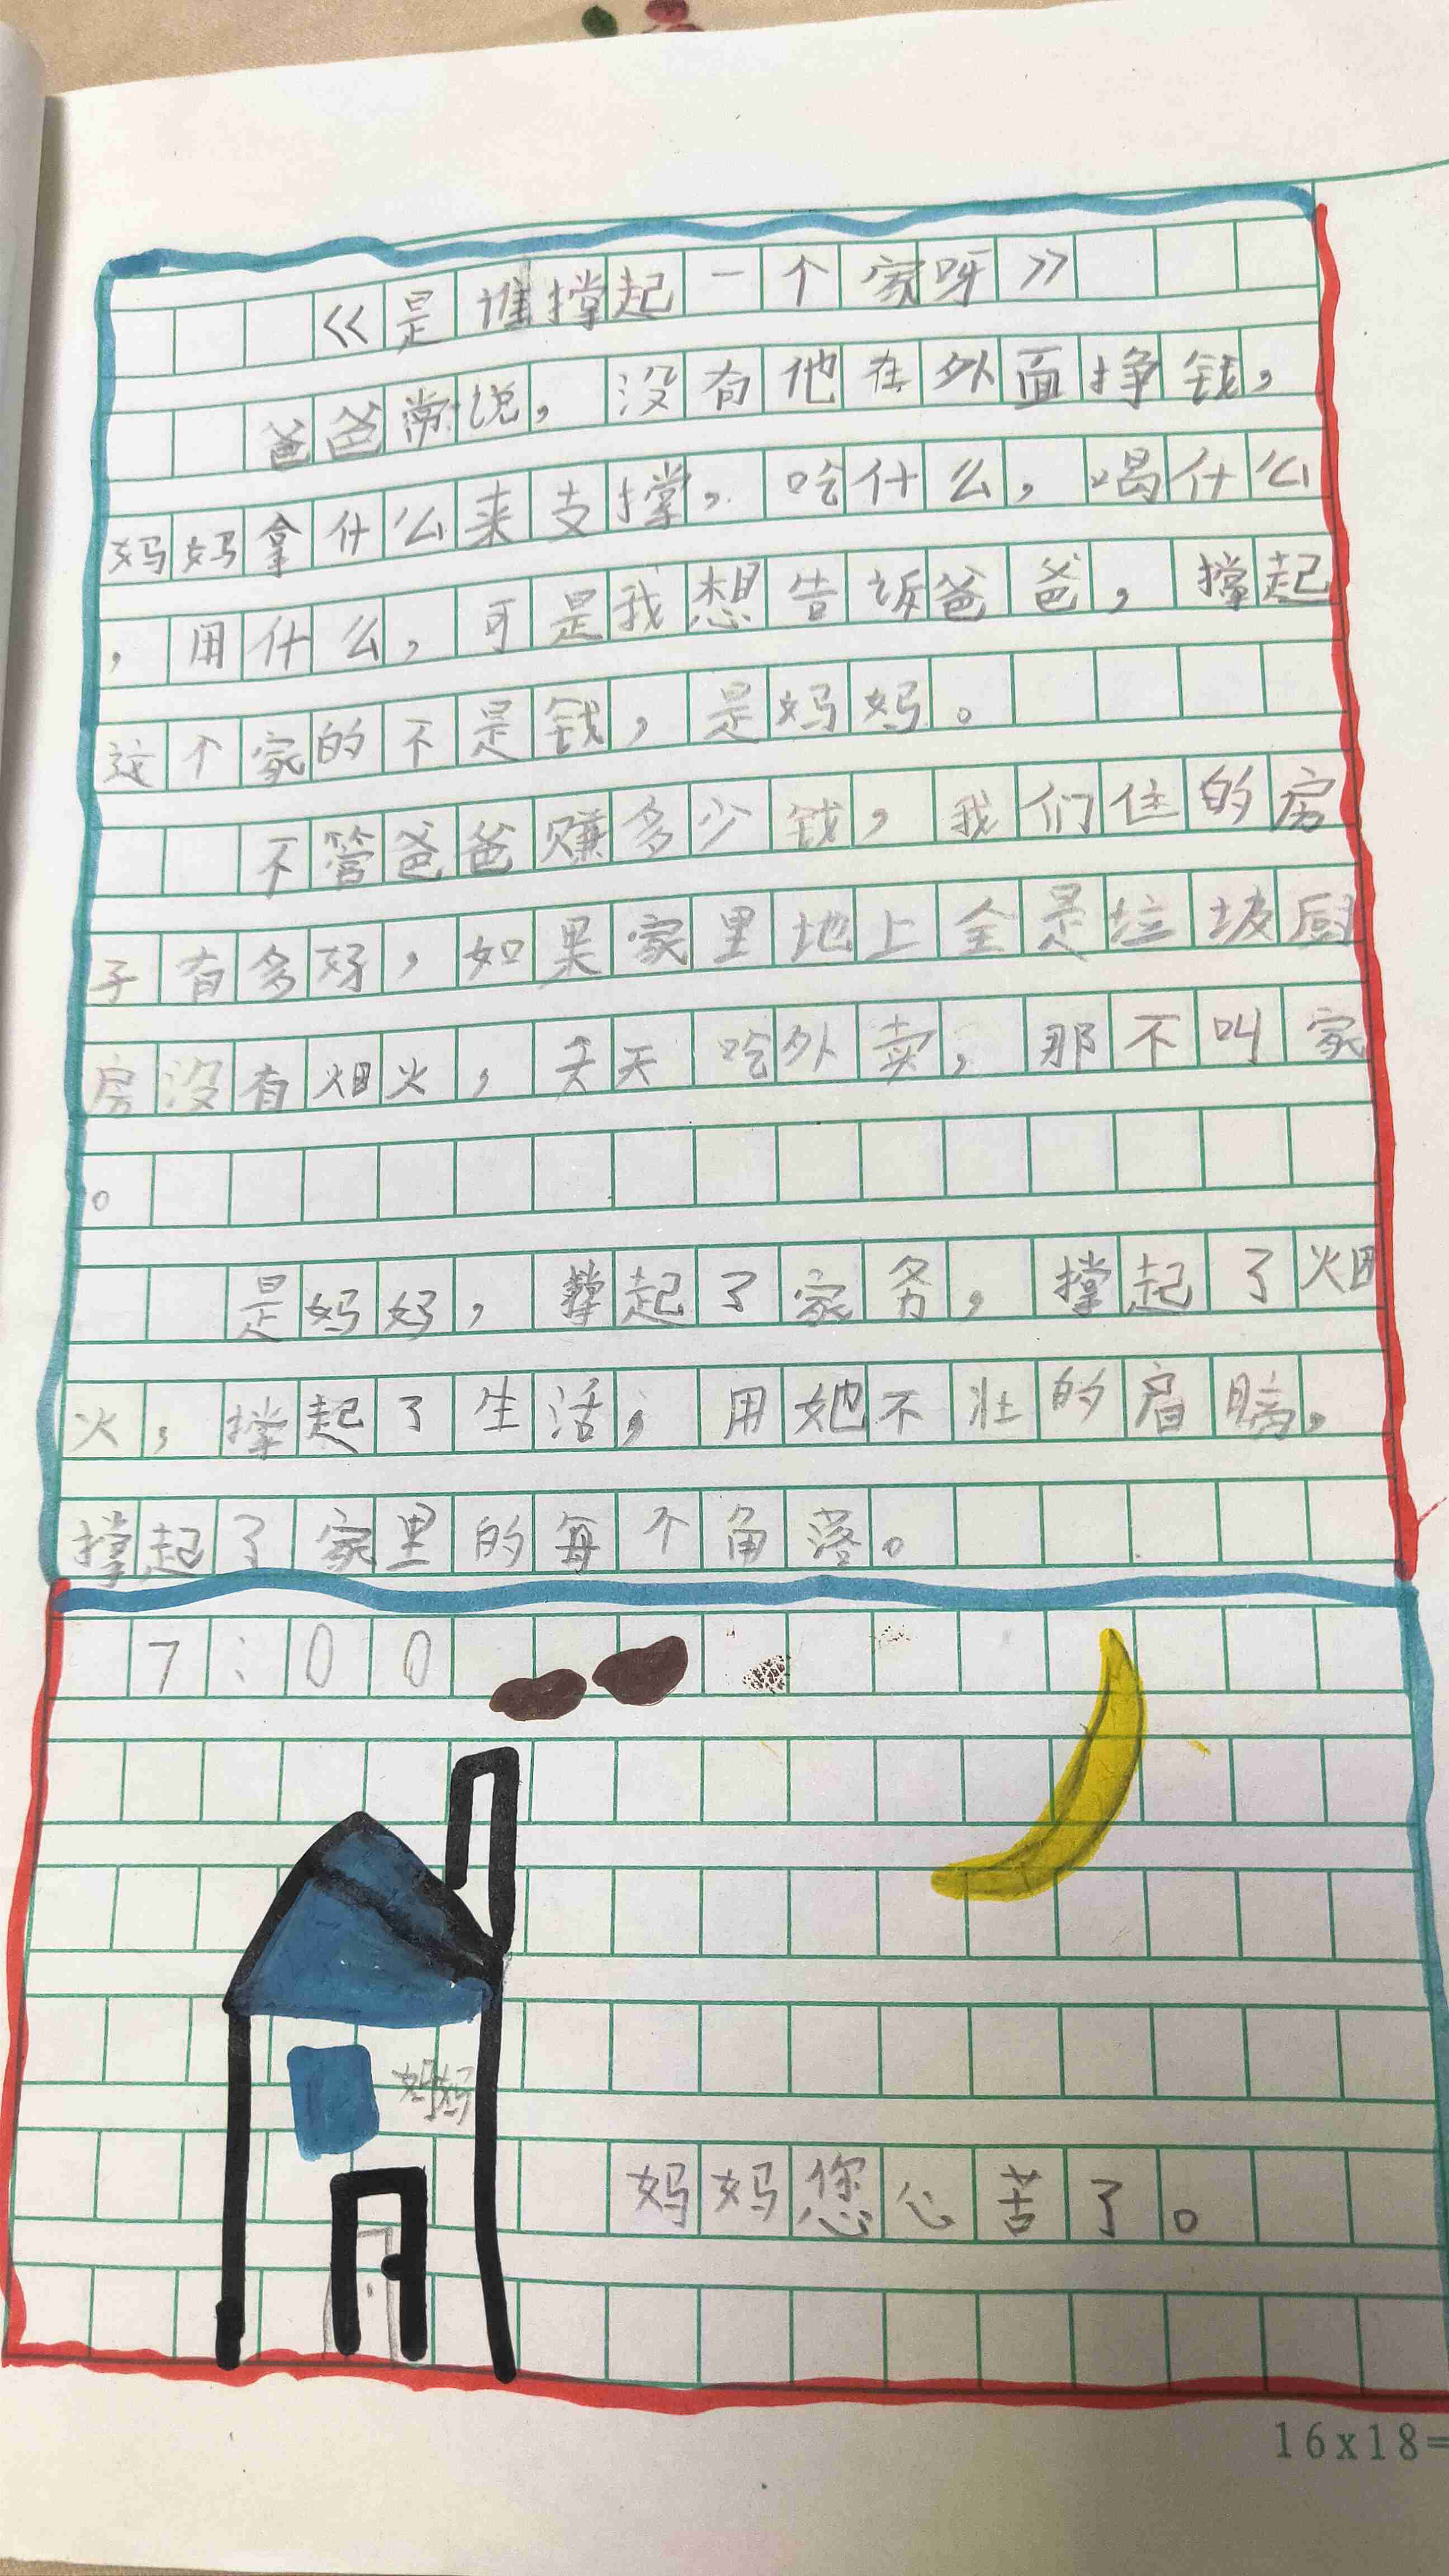 《是谁撑起一个家呀》
爸爸常说，没有他在外面挣钱，
妈妈拿什么来支撑，吃什么，喝什么
，用什么，可是我想告诉爸爸，撑起
这个家的不是钱，是妈妈。
不管爸爸赚多少钱，我们住的房
子有多好，如果家里地上全是垃圾厨
房没有烟火，天天吃外卖，那不叫家
。
是妈妈，撑起了家务，撑起了烟
火，撑起了生活，用她不壮的肩膀，
撑起了家里的每个角落。
7:00
妈妈
妈妈您心苦了。
16x18=